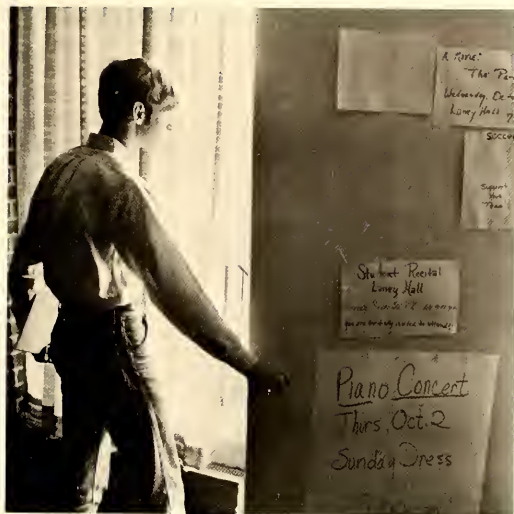 A Time:
The Pa
Wednesday, Oct
Loney Hall 7
SOCCE
Support
Student Recital
Loney Hall
you are cordially invited to attend!
Piano Concert
Thurs, Oct. 2
Sunday Dress